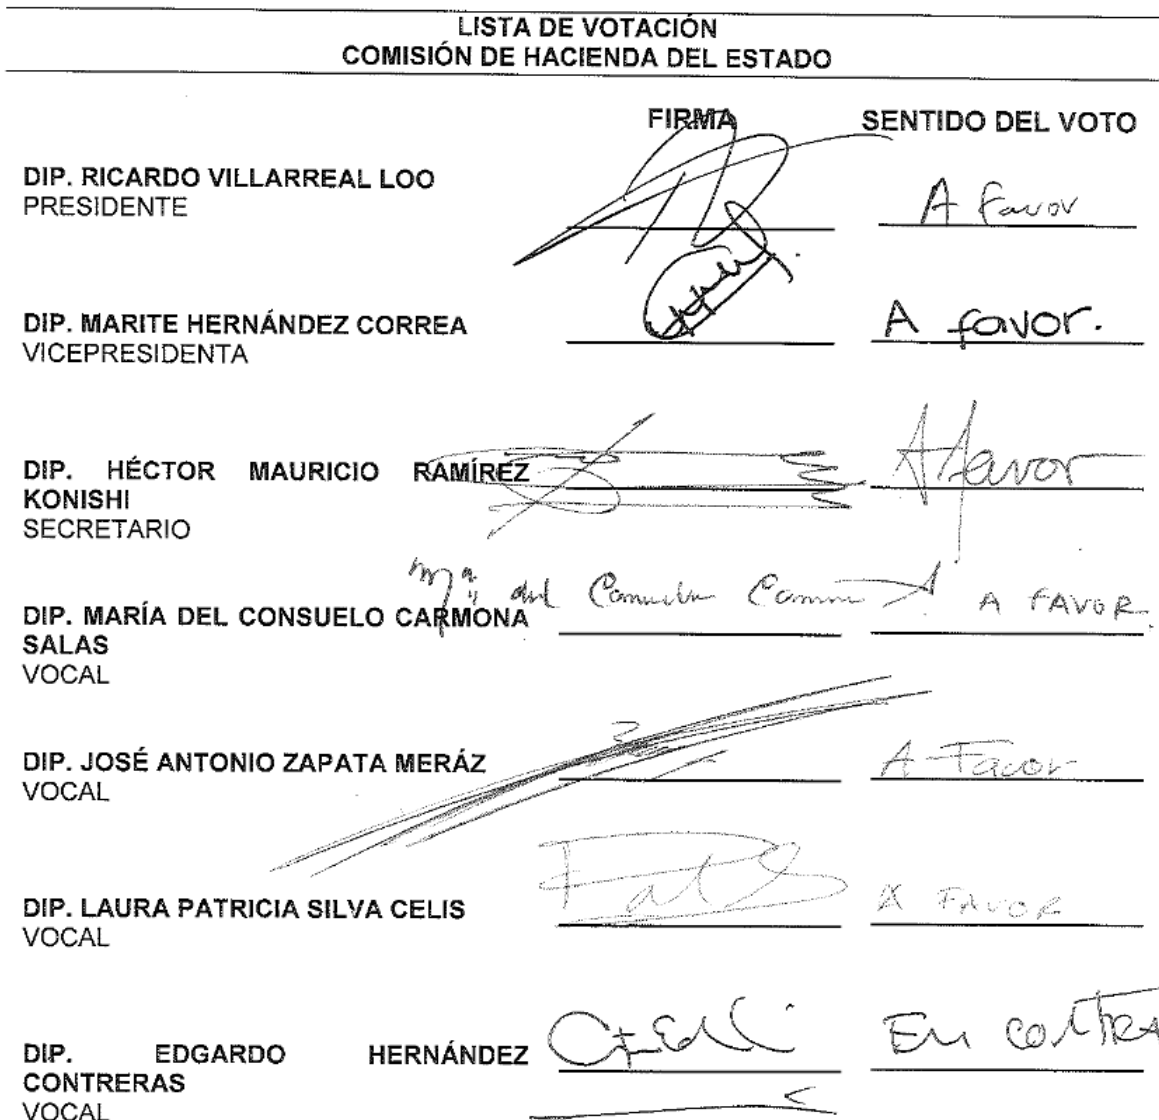 LISTA DE VOTACIÓN
COMISIÓN DE HACIENDA DEL ESTADO
FIRMA SENTIDO DEL VOTO
DIP. RICARDO VILLARREAL LOO
PRESIDENTE
A favor
DIP. MARITE HERNÁNDEZ CORREA
VICEPRESIDENTA
A favor.
DIP. HÉCTOR MAURICIO RAMÍREZ
KONISHI
SECRETARIO
A favor
DIP. MARÍA DEL CONSUELO CARMONA
SALAS
VOCAL
Mª del Consuelo A FAVOR.
DIP. JOSÉ ANTONIO ZAPATA MERÁZ
VOCAL
A Favor
DIP. LAURA PATRICIA SILVA CELIS
VOCAL
Pat S A FAVOR
DIP. EDGARDO HERNÁNDEZ
CONTRERAS
VOCAL
En contRA